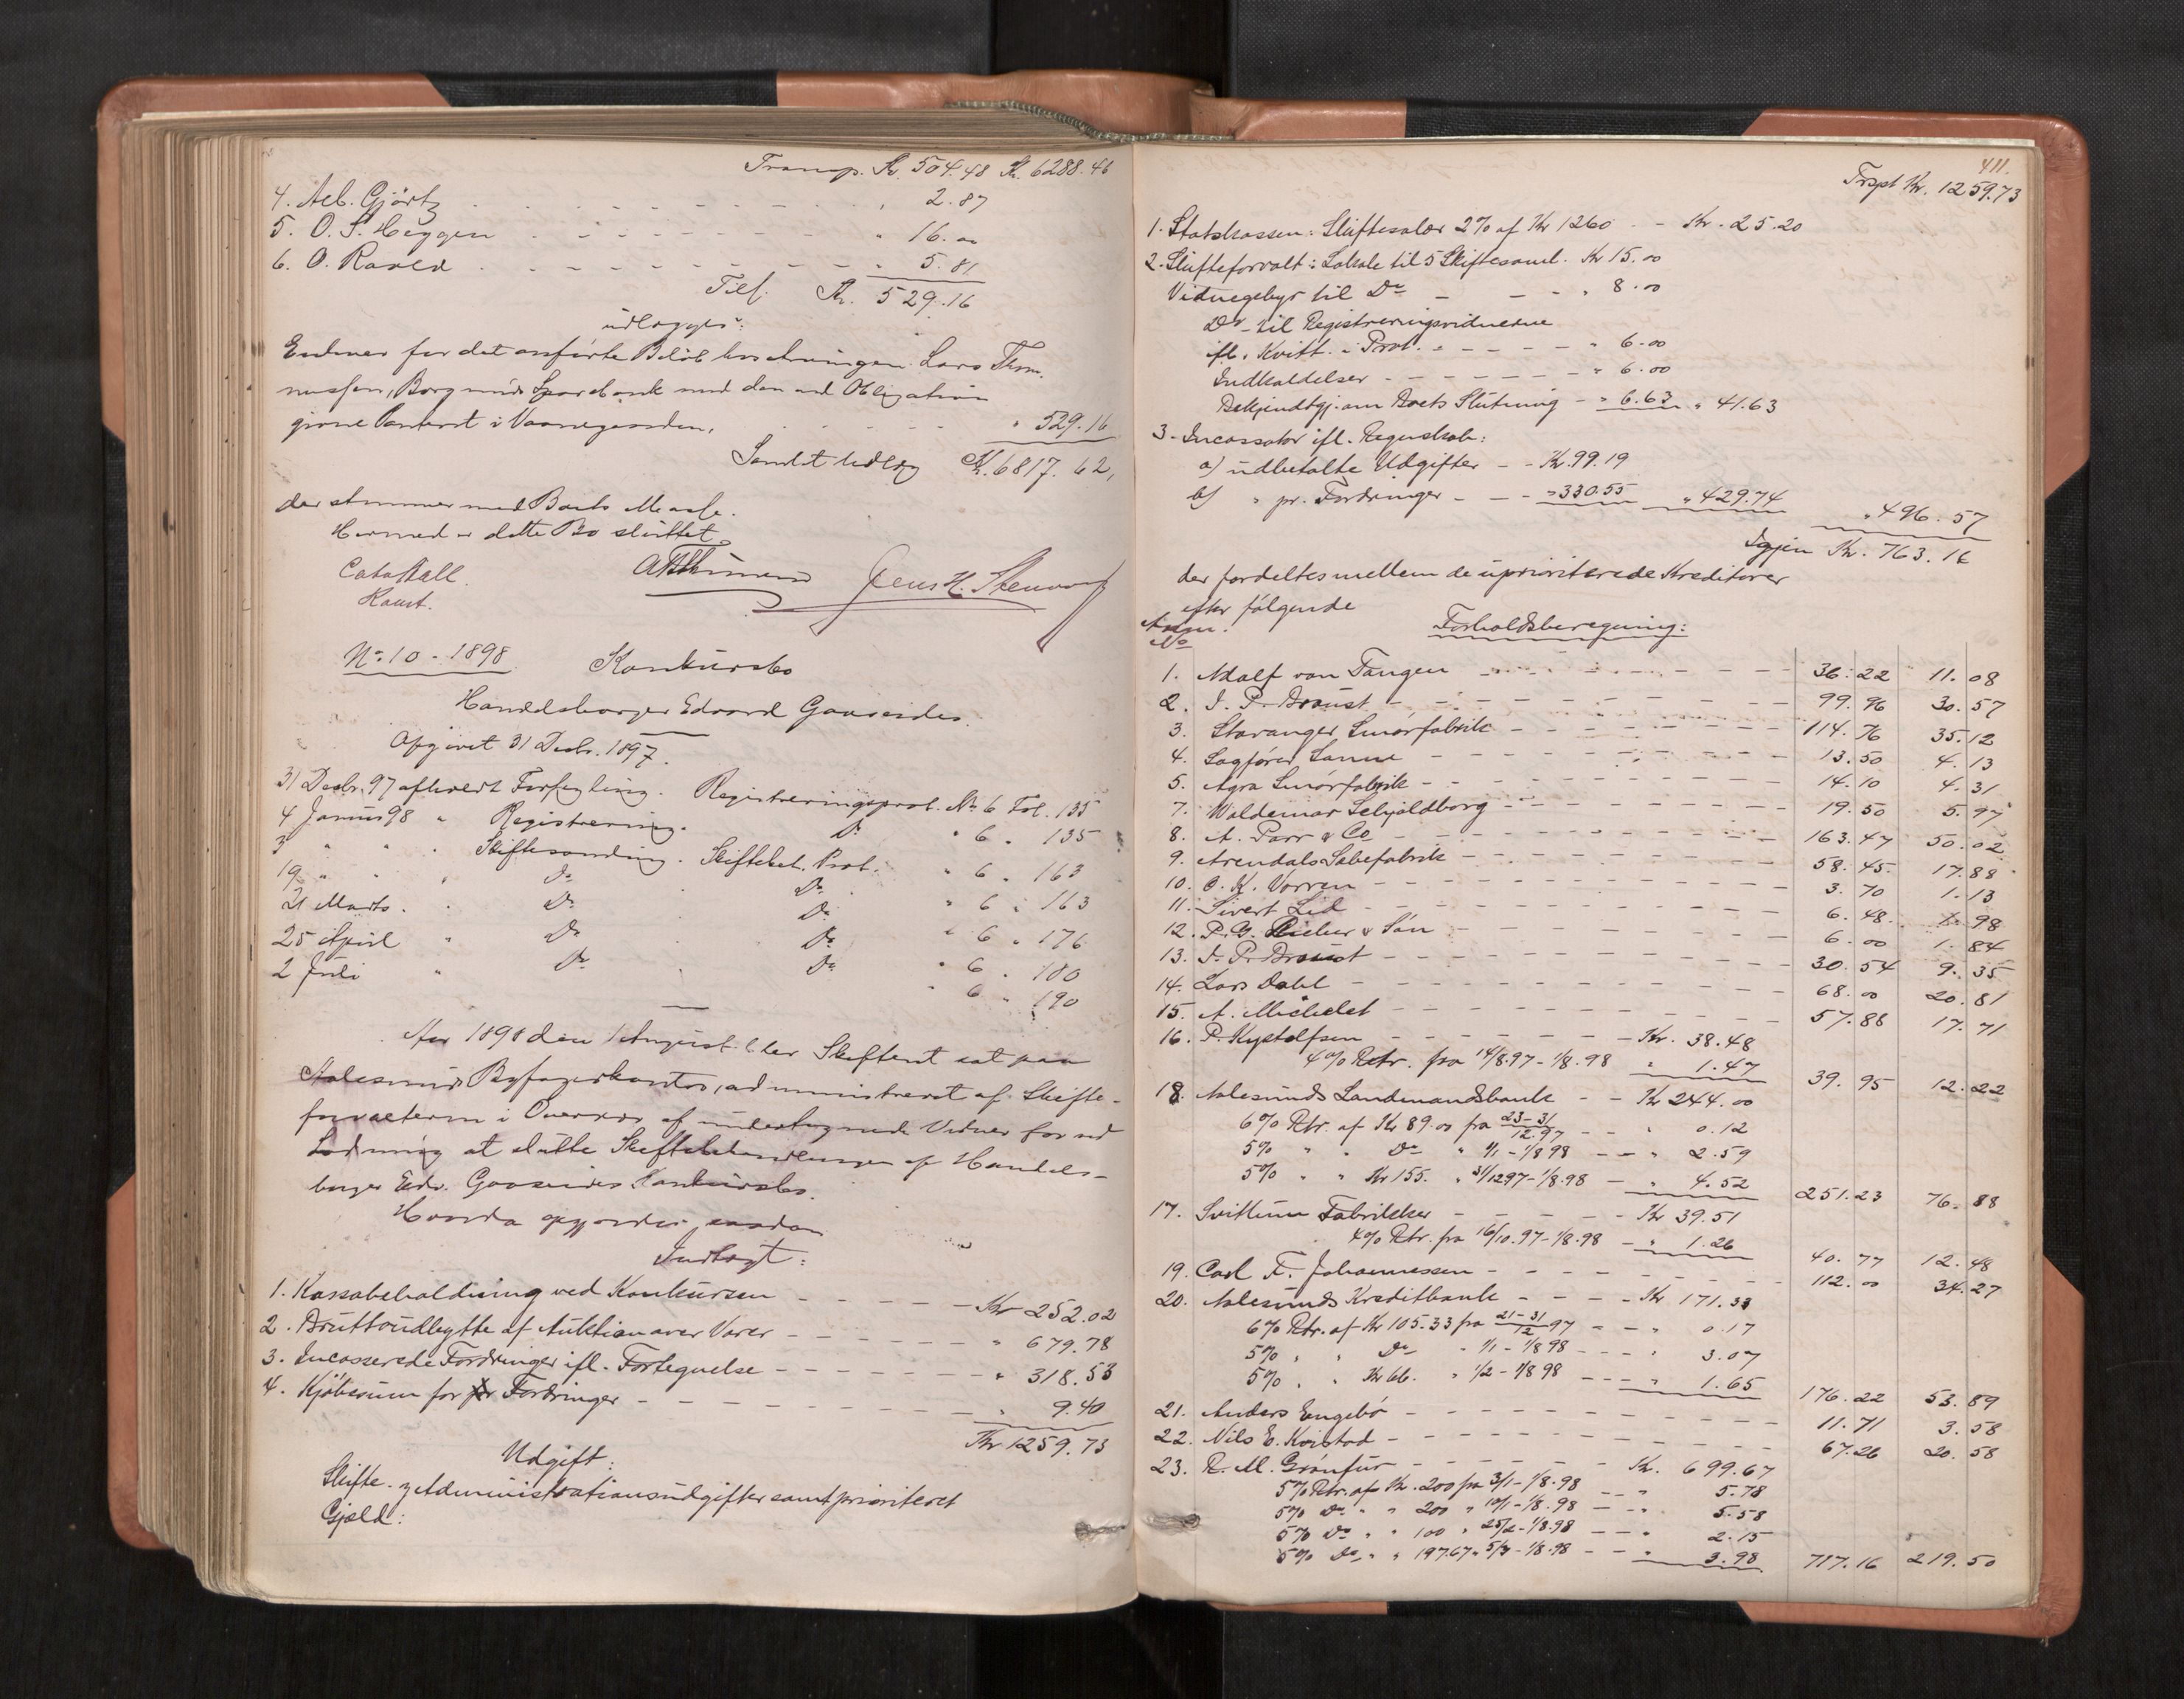 Transp. Kr. 504.48 Kr. 6288.46
4. Aeb. Gjörtz . . . . . " 2.87
5. O. S. Heggen . . . . . " 16.00
6. O. Raved . . . . . " 5.81
Tils. Kr. 529.16
udlægges:
Enhver for det anførte Beløb
Borgunds Sparebank med den ved Obligation
givne Panteret i Vaanegaarden, . . . . " 529.16
Samlet Udlæg Kr. 6817.62,
der stemmer med Boets Masse.
Hermed er dette Bo sluttet.
Jens H. Stenvaag
Const.
No. 10 - 1898 Konkursbo
Handelsborger Edvard Gaaseides.
Opgivet 31 Decbr. 1897.
31 Decbr. 97 afholdt Forsegling. Registreringsprot. No 6 Fol. 135
4 Januar 98 " Registrering. Do " 6 " 135
3 " " " Skiftesamling. Skiftebeh. Prot. " 6 " 163
19 " " " Do Do " 6 " 163
21 Marts " Do Do " 6 " 176
25 April " Do Do " 6 " 180
2 Juli " Do Do " 6 " 190
Aar 1898 den 1 August blev Skifteret sat paa
Aalesunds Byfogedkontor, administreret af Skifte-
forvalteren i Overvær af undertegnede Vidner for ved
Lodning at slutte Skiftebehandlingen af Handels-
borger Edv. Gaaseides Konkursbo.
Hvorda opgjordes saadan
Indtægt:
1. Kassabeholdning ved Konkursen - - - - - Kr 252.02
2. Bruttoudbytte af Auktion over Varer - - - - - " 679.78
3. Incasserede Fordringer ifl. Fortegnelse - - - - " 318.53
4. Kjöbesum for Fordringer - - - - - - " 9.40
Kr 1259.73
Udgift:
Skifte- & Administrationsudgifter samt prioriteret
Gjæld:
411.
Trspt Kr. 1259.73
1. Statskassen: Skiftesalær 2% af Kr 1260 - - Kr. 25.20
2. Skifteforvalt: Lokale til 5 Skiftesaml. Kr 15.00
Vidnegebyr til Do - - - " 8.00
Do - til Registreringsvidnerne
ifl. Kvitt. i Prot. - - - - - " 6.00
Indkaldelser - - - - - - " 6.00
Bekjendtgj. om Boets Slutning - " 6.63 " 41.63
3. Incassator ifl. Regnskab:
a) udbetalte Udgifter - - Kr. 99.19
b) " pr. Fordringer - - - " 330.55 " 429.74
" 496.57
Igjen Kr. 763.16
der fordeltes mellem de uprioriterede Kreditorer
efter følgende
Anm. No
Forholdsberegning:
1. Adalf von Tangen - - - - 36.22 11.08
2. I. P. Broust - - - - 99.96 30.57
3. Stavanger Smørfabrik - - - - 114.76 35.12
4. Sagfører Sanne - - - - 13.50 4.13
5. Agra Smørfabrik - - - - 14.10 4.31
7. Waldemar Schjoldborg - - - - 19.50 5.97
8. A. Parr & Co - - - - 163.47 50.02
9. Arendals Sæbefabrik - - - - 58.45 17.88
10. O. K. Vorren - - - - 3.70 1.13
11. Sivert Lid - - - - 6.48 1.98
12. P. G. Rieber & Søn - - - - 6.00 1.84
13. I. P. Broust - - - - 30.54 9.35
14. Lars Dahl - - - - 68.00 20.81
15. A. Michelet - - - - 57.88 17.71
16. P. Kystolfsen - - - - Kr. 38.48
4% Rtr. fra 14/8.97 - 1/8.98 " 1.47 39.95 12.22
18. Aalesunds Landmandsbank - - Kr 244.00
6% Rtr. af Kr 89.00 fra 23-31/12.97 - - " 0.12
5% " " Do " 1/1 - 1/8 98 - - " 2.59
5% " " Kr 155. " 31/12 97 - 1/8.98 - " 4.52 251.23 76.88
17. Svithun Fabrikker - - - - Kr 39.51
4% Rtr. fra 16/10.97 - 1/8.98 - " 1.26 40.77 12.48
19. Carl F. Johannessen - - - - 112.00 34.27
20. Aalesunds Kreditbank - - - - Kr 171.33
6% Rtr. af Kr 105.33 fra 21-31/12 97 - - " 0.17
5% " " Do " 1/1 - 1/8 98 - - - " 3.07
5% " " Kr 66. " 1/2 - 1/8 98 - - - " 1.65 176.22 53.89
21. Anders Engebö - - - - 11.71 3.58
22. Nils E. Kvistad - - - - 67.26 20.58
23. R. M. Grönfur - - - - Kr. 699.67
5% Rtr. af Kr. 200 fra 3/1 - 1/8.98 - - " 5.78
5% Do " " 200 " 10/1 - 1/8.98 - - " 5.58
5% Do " " 100 " 25/2 - 1/8.98 - - " 2.15
5% Do " " 197.67 " 5/3 - 1/8.98 - - " 3.98 717.16 219.50